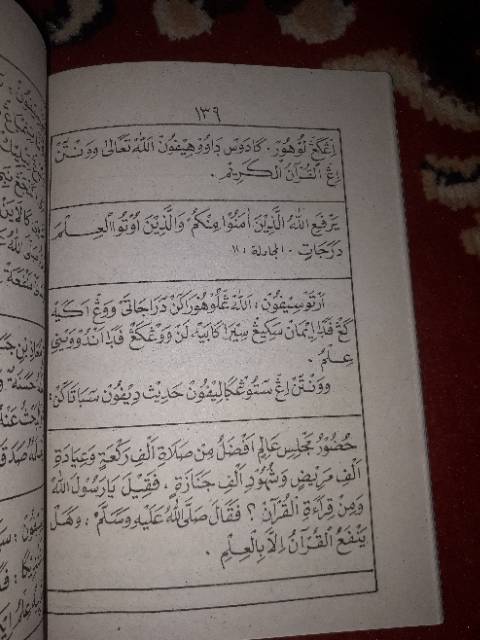 ١٣٩
اڠكڠ لوهور. كادوس داووهيفون الله تعالى وونتن
اڠ القرآن الكريم.
يَرْفَعِ اللهُ الَّذِيْنَ اٰمَنُوْا مِنْكُمْ وَالَّذِيْنَ اُوْتُوا الْعِلْمَ
دَرَجَاتٍ - المجادلة: ١١
ارتوسيفون: الله ڠلوهوراكن دراجاتى ووڠ اكيه
كڠ فدا ايمان سكيڠ سيرا كابيه، لن ووڠ كڠ فدا اندووينى
علم.
وونتن اڠ ستوڠكاليفون حديث ديفون سباتاكن:
حُضُوْرُ مَجْلِسِ عَالِمٍ اَفْضَلُ مِنْ صَلَاةِ اَلْفِ رَكْعَةٍ وَعِيَادَةِ
اَلْفِ مَرِيْضٍ وَشُهُوْدِ اَلْفِ جَنَازَةٍ، فَقِيْلَ يَارَسُوْلَ اللهِ
وَمِنْ قِرَاءَةِ الْقُرْآنِ؟ فَقَالَ صَلَّى اللهُ عَلَيْهِ وَسَلَّمَ: وَهَلْ
يَنْفَعُ الْقُرْآنُ اِلَّا بِالْعِلْمِ.